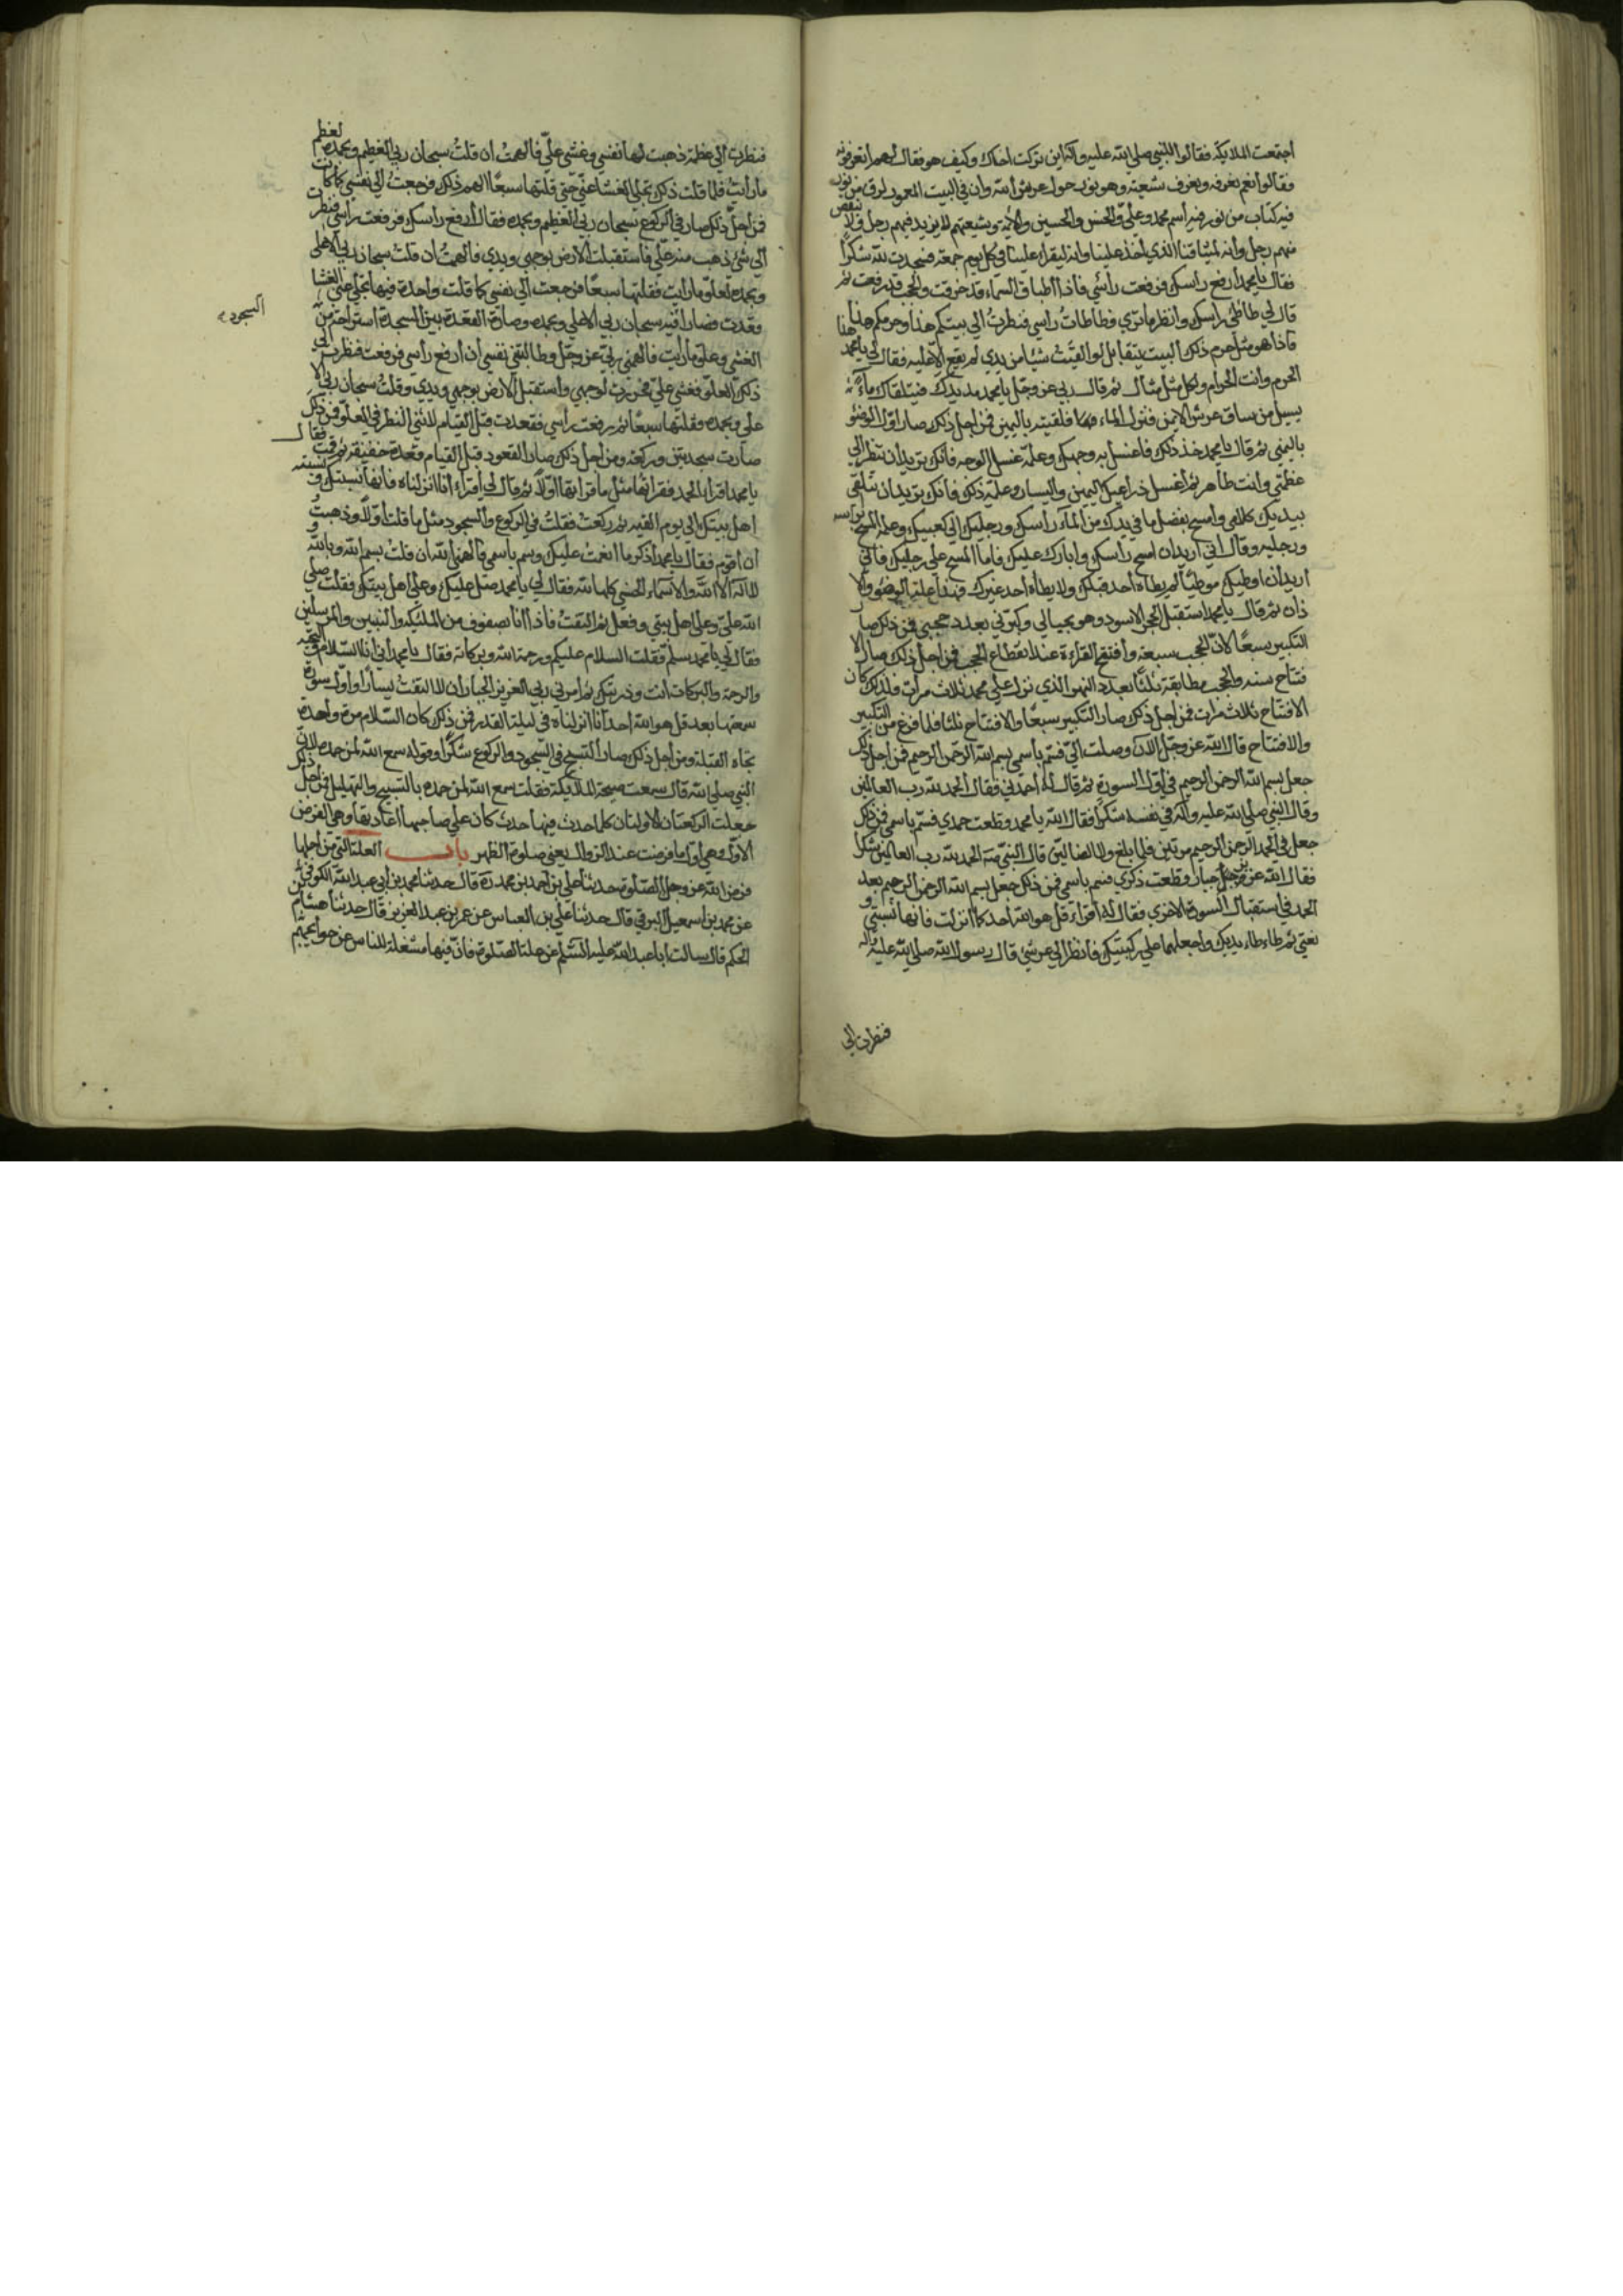 اجتمعت الملايكة فقالوا للنبي صلي الله عليه وآله اين تركت اخاك وكيف هو فقال لهم اتعرفونه
فقالوا نعم نعرفه ونعرف شيعته وهو نور حول عرش الله وان في البيت المعمور لرق من نور
فيه كتاب من نور فيه اسم محمد وعلي والحسن والحسين والأئمة وشيعتهم لا يزيد فيهم رجل ولا ينقص
منهم رجل وانه لميثاقنا الذي اخذ علينا وانه ليقراء علينا في كل يوم جمعة فسجدت لله شكراً
فقال يا محمد ارفع راسك فرفعت رأسي فاذا اطباق السماء قد خرقت والحجب قد رفعت ثم
قال لي طأطئ راسك وانظر ما تري فطاطات راسي فنظرت الي بيتكم هذا وحرمكم هذا
فاذا هو مثل حرم ذلك البيت يتقابل لو القيت شيئا من يدي لم يقع الا عليه فقال لي يا محمد هذا
الحرم وانت الحرام ولكل مثل مثال ثم قال ربي عز وجل يا محمد مد يدك فيتلقاك ماء
يسيل من ساق عرشي الايمن فنزل الماء فتلقيته باليمين فمن اجل ذلك صار اول الوضوء
باليمني ثم قال يا محمد خذ ذلك فاغسل به وجهك وعلمه غسل الوجه فانك تريد ان تنظر الي
عظمتي وانت طاهر ثم اغسل ذراعيك اليمين واليسار وعلمه ذلك فانك تريد ان تتلقي
بيديك كلامي وامسح بفضل ما في يدك من الماء رأسك ورجليك الي كعبيك وعلمه المسح براسه
ورجليه وقال اني اريد ان امسح رأسك وابارك عليك فاما المسح علي رجليك فاني
اريد ان اوطيك موطئا لم يطأه أحد قبلك ولا يطأه احد غيرك فهذا علة الوضوء والا
ذان ثم قال يا محمد استقبل الحجر الاسود وهو بحيالي وكبرني بعدد حجبي فمن ذلك صار
التكبير سبعًا لان الحجب سبعة وافتتح القراءة عند انقطاع الحجب فمن اجل ذلك صار الا
فتتاح سنه والحجب مطابقة ثلثًا بعدد النور الذي نزل علي محمد ثلاث مرات فلذلك كان
الافتتاح ثلاث مرات فمن اجل ذلك صار التكبير سبعًا والافتتاح ثلثا فلما فرغ من التكبير
والافتتاح قال الله عز وجل الان وصلت الي فسم باسمي بسم الله الرحمن الرحيم فمن اجل ذلك
جعل بسم الله الرحمن الرحيم في اول السورة ثم قال له احمدني فقال الحمد لله رب العالمين
وقال النبي صلي الله عليه وآله في نفسه شكراً فقال الله يا محمد قطعت حمدي فسم باسمي فمن ذلك
جعل في الحمد الرحمن الرحيم مرتين فلما بلغ ولا الضالين قال النبي صلي الله الحمد لله رب العالمين شكراً
فقال الله عز وجل الجبار قطعت ذكري فسم باسمي فمن ذلك جعل بسم الله الرحمن الرحيم بعد
الحمد في استقبال السورة الاخري فقال له اقراء قل هو الله احد كما انزلت فانها نسبتي و
نعتي ثم طاءطاء يديك واجعلهما علي ركبتيك فانظر الي عرشي قال رسول الله صلي الله عليه وآله
فنظرت الي
فنظرت الي عظمة ذهبت لها نفسي وغشي علي فالهمت ان قلت سبحان ربي العظيم وبحمده لعظم
ما رأيت فلما قلت ذلك تجلي الغشا عني حتي قلتها سبعًا الهم ذلك فرجعت الي نفسي كما كانت
فمن اجل ذلك صار في الركوع سبحان ربي العظيم وبحمده فقال ارفع راسك فرفعت راسي فنظرت
الي شئ ذهب منه عقلي فاستقبلت الارض بوجهي ويدي فالهمت ان قلت سبحان ربي الاعلي
وبحمده لعلو ما رايت فقلتها سبعًا فرجعت الي نفسي كلما قلت واحدة فيها تجلي عني الغشا
فقعدت فصار السجود فيه سبحان ربي الاعلي وبحمده وصارت القعدة بين السجدة استراحة من
الغشي وعلو ما رايت فالهمني ربي عز وجل وطالبتني نفسي ان ارفع راسي فرفعت فنظرت الي
ذلك العلو فغشي علي فخررت لوجهي واستقبل الارض بوجهي ويدي وقلت سبحان ربي الا
علي وبحمده فقلتها سبعًا ثم رفعت رأسي فقعدت قبل القيام لاثني النظر في العلو فمن ذلك
صارت سجدتين وركعة ومن اجل ذلك صار القعود قبل القيام قعدة خفيفة ثم قمت فقال
يا محمد اقرأ الحمد فقراتها مثل ما قراتها اولاً ثم قال لي اقراء انا انزلناه فانها نسبتك ونسبة
اهل بيتك الي يوم القيمة ثم ركعت فقلت في الركوع والسجود مثل ما قلت اولاً وذهبت
ان اقوم فقال يا محمد اذكر ما انعمت عليك وسم باسمي فالهمني الله ان قلت بسم الله وبالله و
لا اله الا الله والاسماء الحسني كلها لله فقال لي يا محمد صل عليك وعلي اهل بيتك فقلت صلي
الله علي وعلي اهل بيتي وقد فعل ثم التفت فاذا انا بصفوف من الملئكة والنبيين والمرسلين
فقال لي يا محمد سلم فقلت السلام عليكم ورحمة الله وبركاته فقال يا محمد اني انا السلام والتحية
والرحمة والبركات انت وذريتك ثم امرني ربي العزيز الجبار ان لا التفت يساراً واول سورة
سمعتها بعد قل هو الله احد انا انزلناه في ليلة القدر فمن ذلك كان السلام مرة واحدة
تجاه القبلة ومن اجل ذلك صار التسبيح في السجود والركوع شكراً وقوله سمع الله لمن حمده لان
النبي صلي الله قال سمعت صيحة الملايكة فقلت سمع الله لمن حمده بالتسبيح والتهليل فمن اجل ذلك
جعلت الركعتان الاولتان كلما احدث فيها حدث كان علي صاحبها اعادتها وهي الفرض
الاول وهي اول ما فرضت عند الزوال يعني صلوة الظهر باب العلة التي من اجلها
فرض الله عز وجل الصلوة حدثنا علي بن احمد بن محمد ره قال حدثنا محمد بن ابي عبد الله الكوفي
عن محمد بن اسمعيل البرقي قال حدثنا علي بن العباس عن عمر بن عبد العزيز قال حدثنا هشام بن
الحكم قال سالت ابا عبد الله عليه السلم عن علة الصلوة فان فيها مشغلة للناس عن حوايجهم